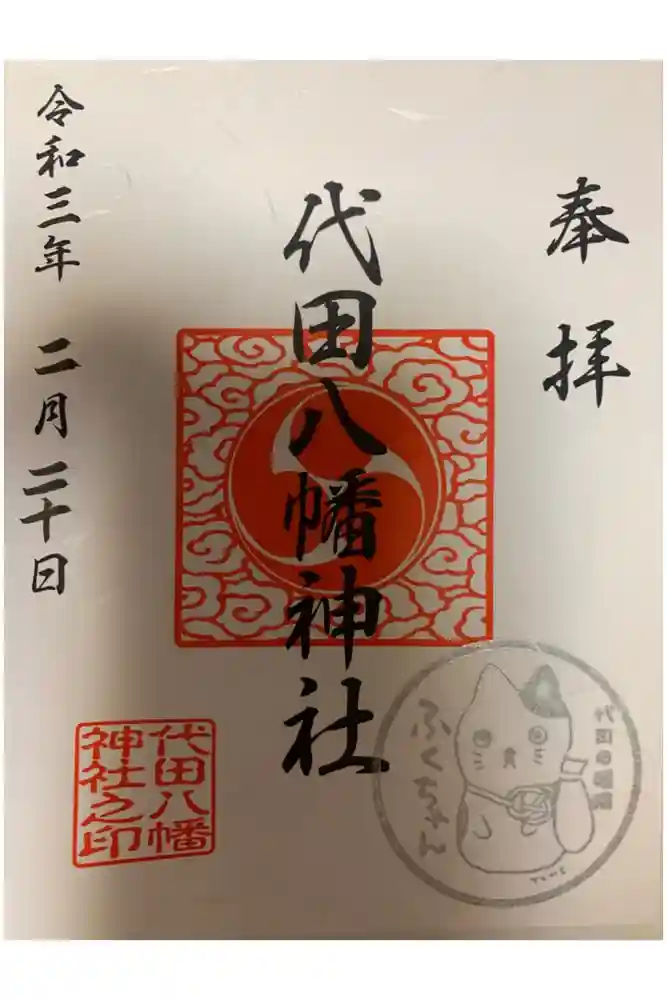 奉拝
代田八幡神社
令和三年 二月 二十日
代田八幡
神社之印
ふくちゃん